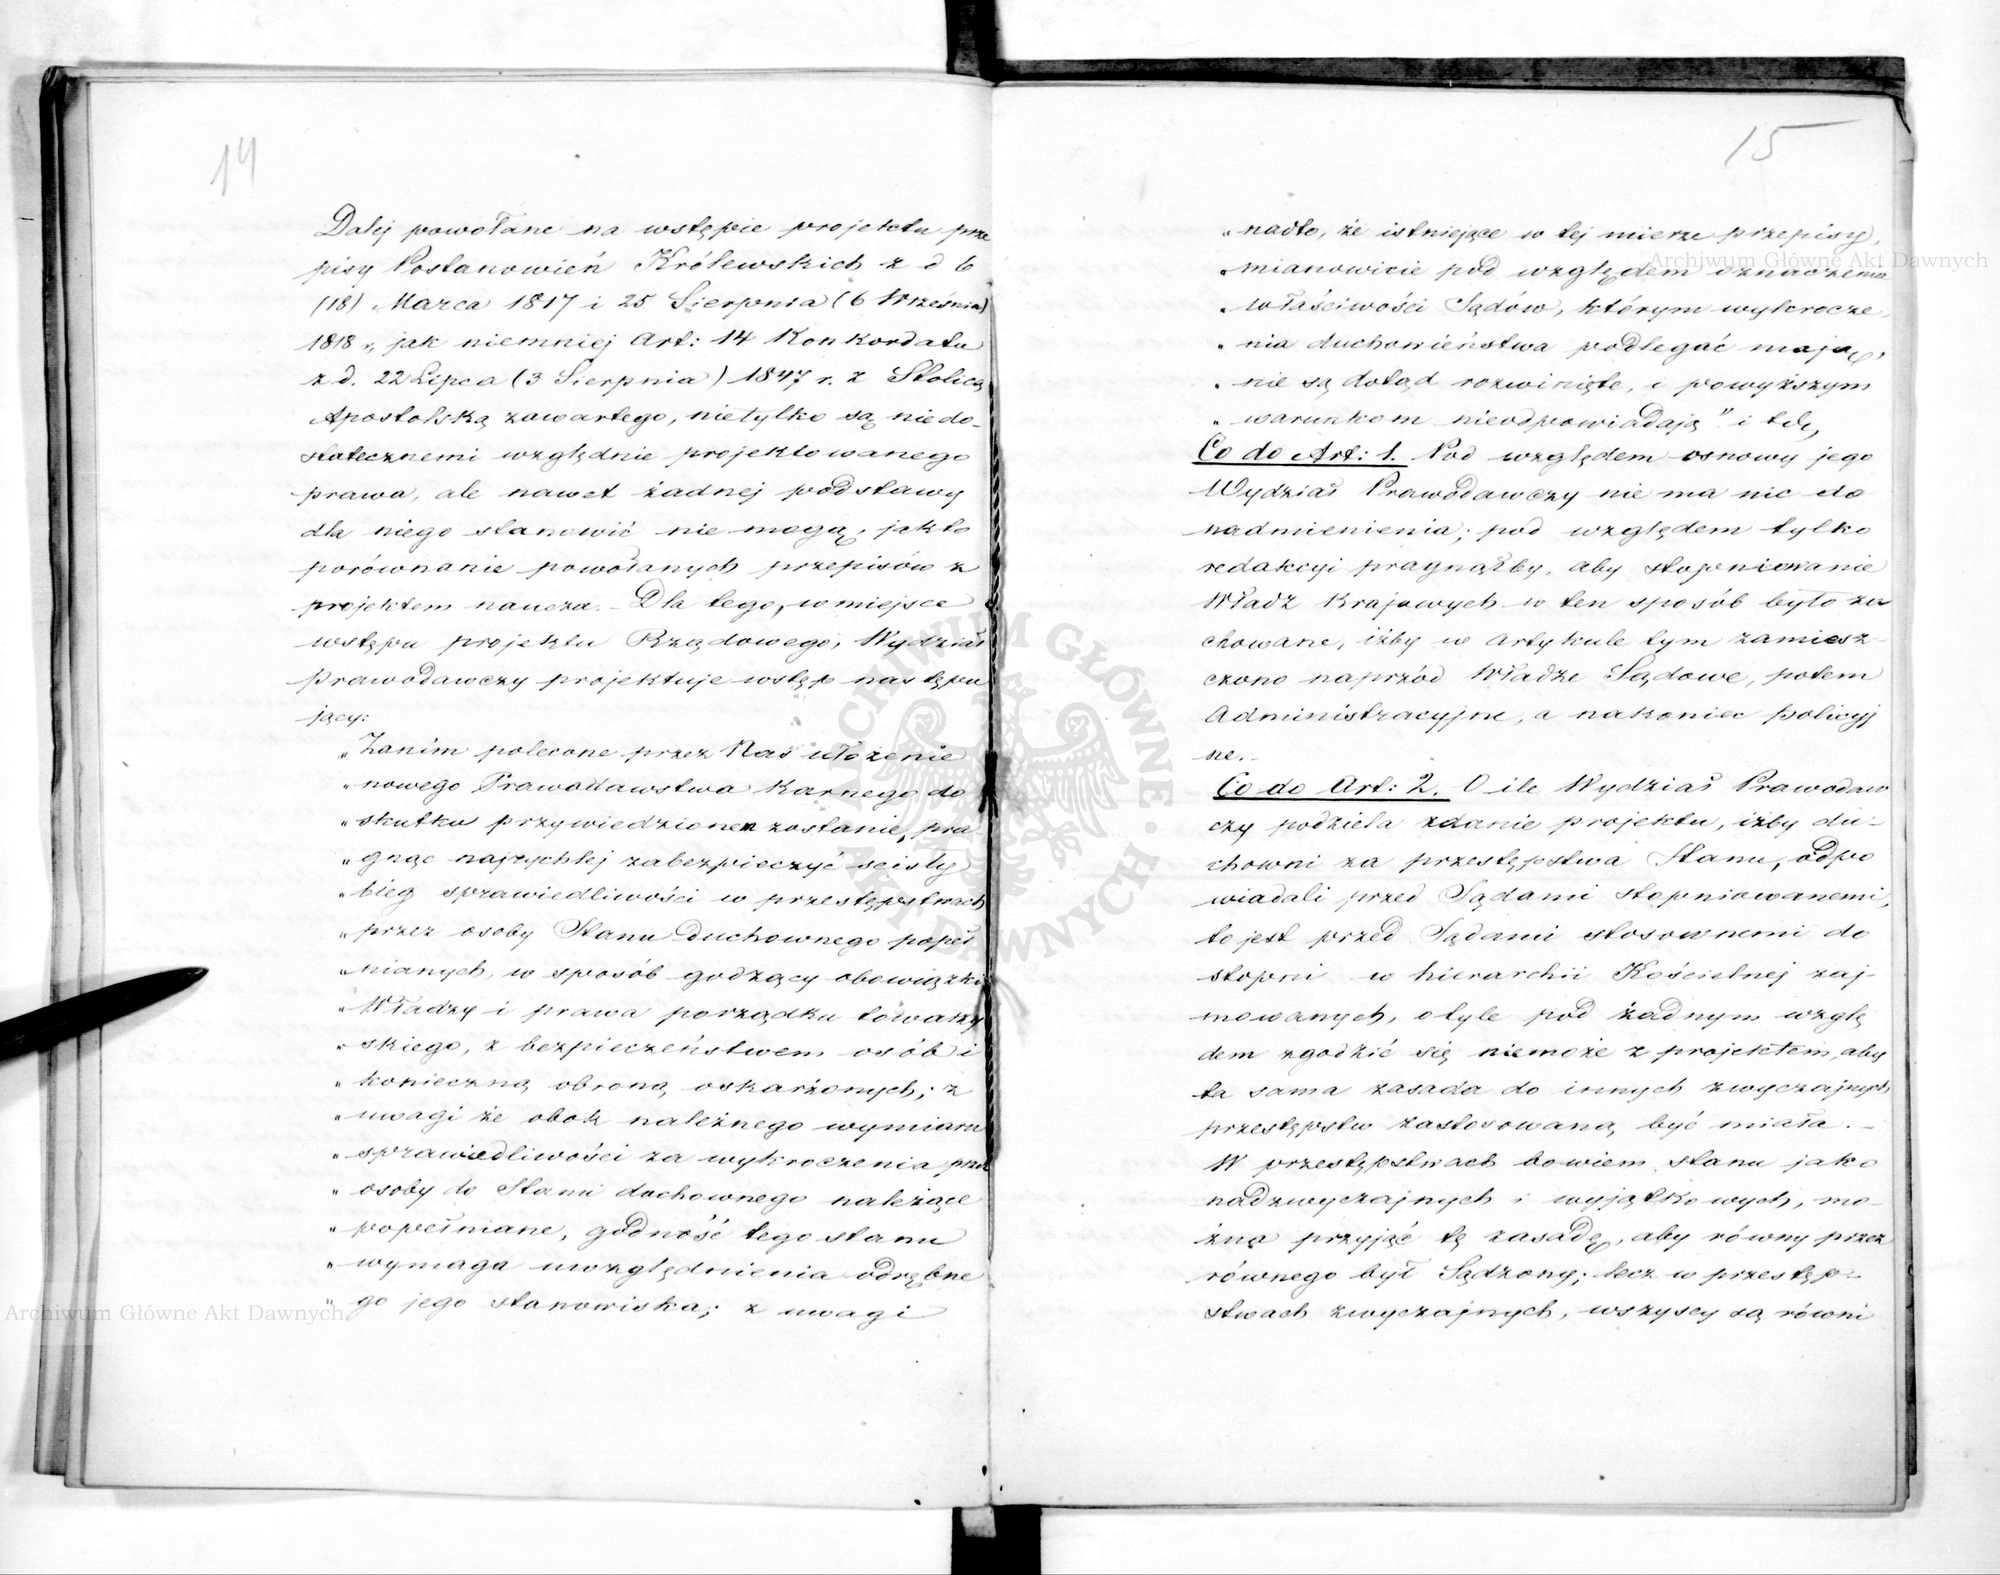 14
Dalej powołane na wstępie projektu prze
pisy Postanowień Królewskich z d 6
(18) Marca 1817 i 25 Sierpnia (6 Września)
1818 r, jak niemniej Art: 14 Konkordatu
z d. 22 Lipca (3 Sierpnia) 1847 r. z Stolicą
Apostolską zawartego, nietylko są niedo-
statecznemi względnie projektowanego
prawa, ale nawet żadnej podstawy
dla niego stanowić nie mogą, jak to
porównanie powołanych przepisów z
projektem naucza. - Dla tego, w miejsce
wstępu projektu Rządowego, Wydział
Prawodawczy projektuje wstęp następu
jący:
„Zanim polecone przez Nas ułożenie
„nowego Prawodawstwa Karnego do
„skutku przywiedzionem zostanie, pra
„gnąc najrychlej zabezpieczyć ścisły
„bieg sprawiedliwości w przestępstwach
„przez osoby Stanu Duchownego popeł
„nianych, w sposób godzący obowiązki
„Władzy i prawa porządku towarzy
„skiego, z bezpieczeństwem osób i
„konieczną obroną oskarżonych; z
„uwagi że obok należnego wymiaru
„sprawiedliwości za wykroczenia przez
„osoby do Stanu duchownego należące
„popełniane, godność tego stanu
„wymaga uwzględnienia odrębne
„go jego stanowiska; z uwagi
15
„nadto, że istniejące w tej mierze przepisy,
„mianowicie pod względem oznaczenia
„właściwości Sądów, którym wykrocze
„nia duchowieństwa podlegać mają,
„nie są dotąd rozwinięte, i powyższym
„warunkom nieodpowiadają" i t.d.,
Co do Art: 1. Pod względem osnowy jego
Wydział Prawodawczy nie ma nic do
nadmienienia; pod względem tylko
redakcyi pragnąłby, aby stopniowanie
Władz Krajowych w ten sposób było za
chowane, iżby w artykule tym zamiesz-
czono naprzód Władze Sądowe, potem
Administracyjne, a nakoniec policyj
ne. -
Co do Art: 2. O ile Wydział Prawodaw
czy podziela zdanie projektu, iżby du-
chowni za przestępstwa Stanu, odpo
wiadali przed Sądami stopniowanemi,
to jest przed Sądami stosownemi do
stopni w hierarchii Kościelnej zaj-
mowanych, o tyle pod żadnym wzglę
dem zgodzić się niemoże z projektem, aby
ta sama zasada do innych zwyczajnych
przestępstw zastosowaną być miała. -
W przestępstwach bowiem stanu jako
nadzwyczajnych i wyjątkowych, mo-
żna przyjąć tę zasadę, aby równy przez
równego był Sądzony; lecz w przestęp-
stwach zwyczajnych, wszyscy są równi
Archiwum Główne Akt Dawnych
Archiwum Główne Akt Dawnych
ARCHIWUM GŁÓWNE · AKT DAWNYCH ·